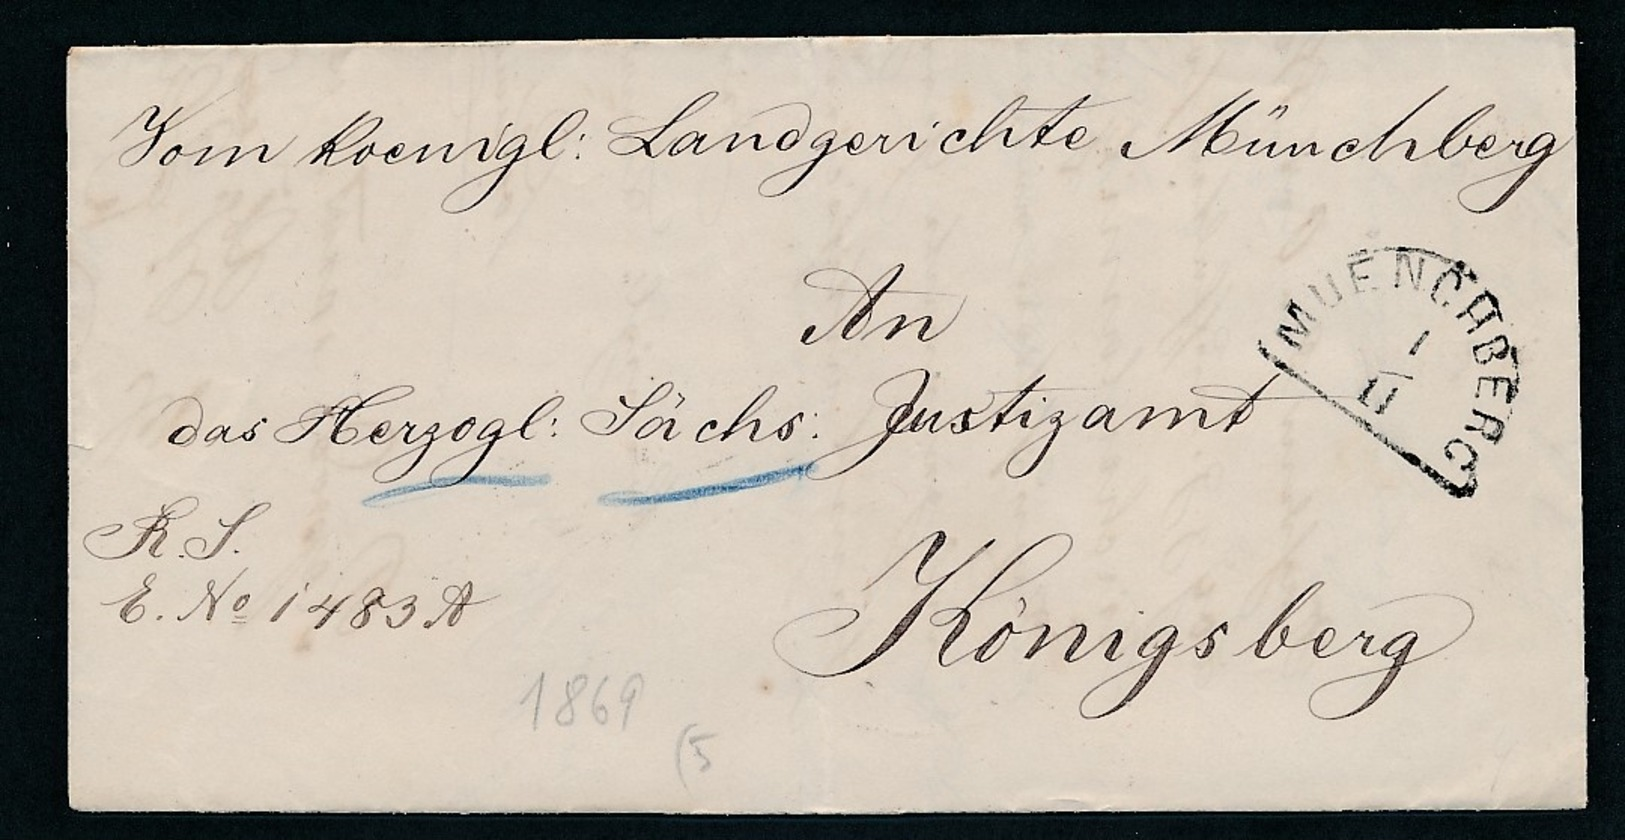 Vom koenigl: Landgerichte Münchberg
MUENCHBERG
1
11
An
das Herzogl: Sächs: Justizamt
R. S.
E. No 1483 A
Königsberg
1869
(5